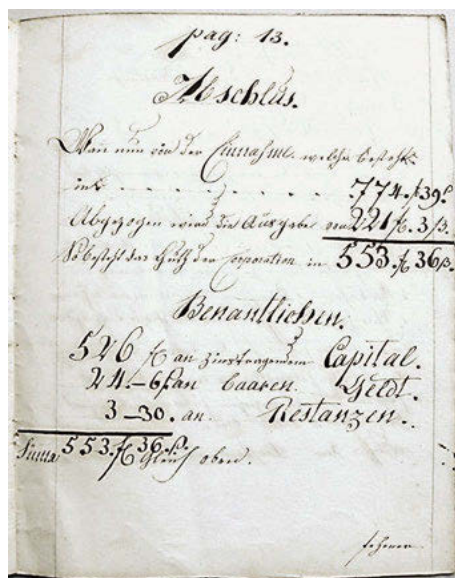 pag: 13.
Abschlus.
Wann nun von der Einnahme welche besteht
in - - - - - - - 774. f 39 ß
Abgezogen wird die Ausgabe von 221 f. 3 ß.
So besteht das Guth der Corporation in 553. f 36 ß.
Benantlichen.
526 f an zinstragendem Capital.
24.-6 ß an baaren. Geldt.
3-30. an. Restanzen.
Suma 553. f 36. ß. Gleich oben.